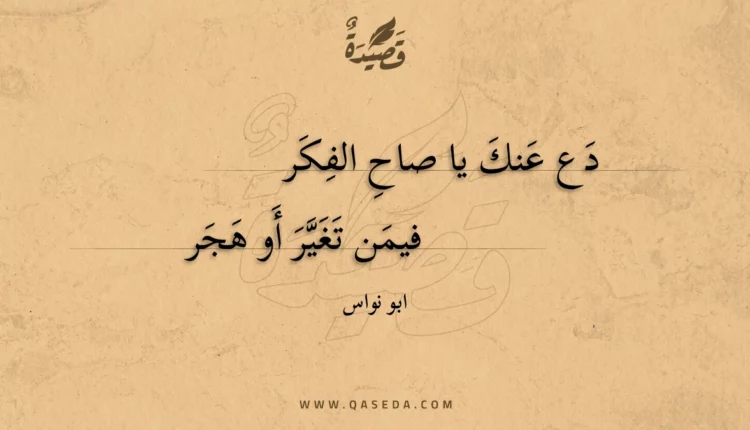 قَصِيدَةٌ
دَع عَنكَ يا صاحِ الفِكَر
فيمَن تَغَيَّرَ أَو هَجَر
ابو نواس
WWW.QASEDA.COM